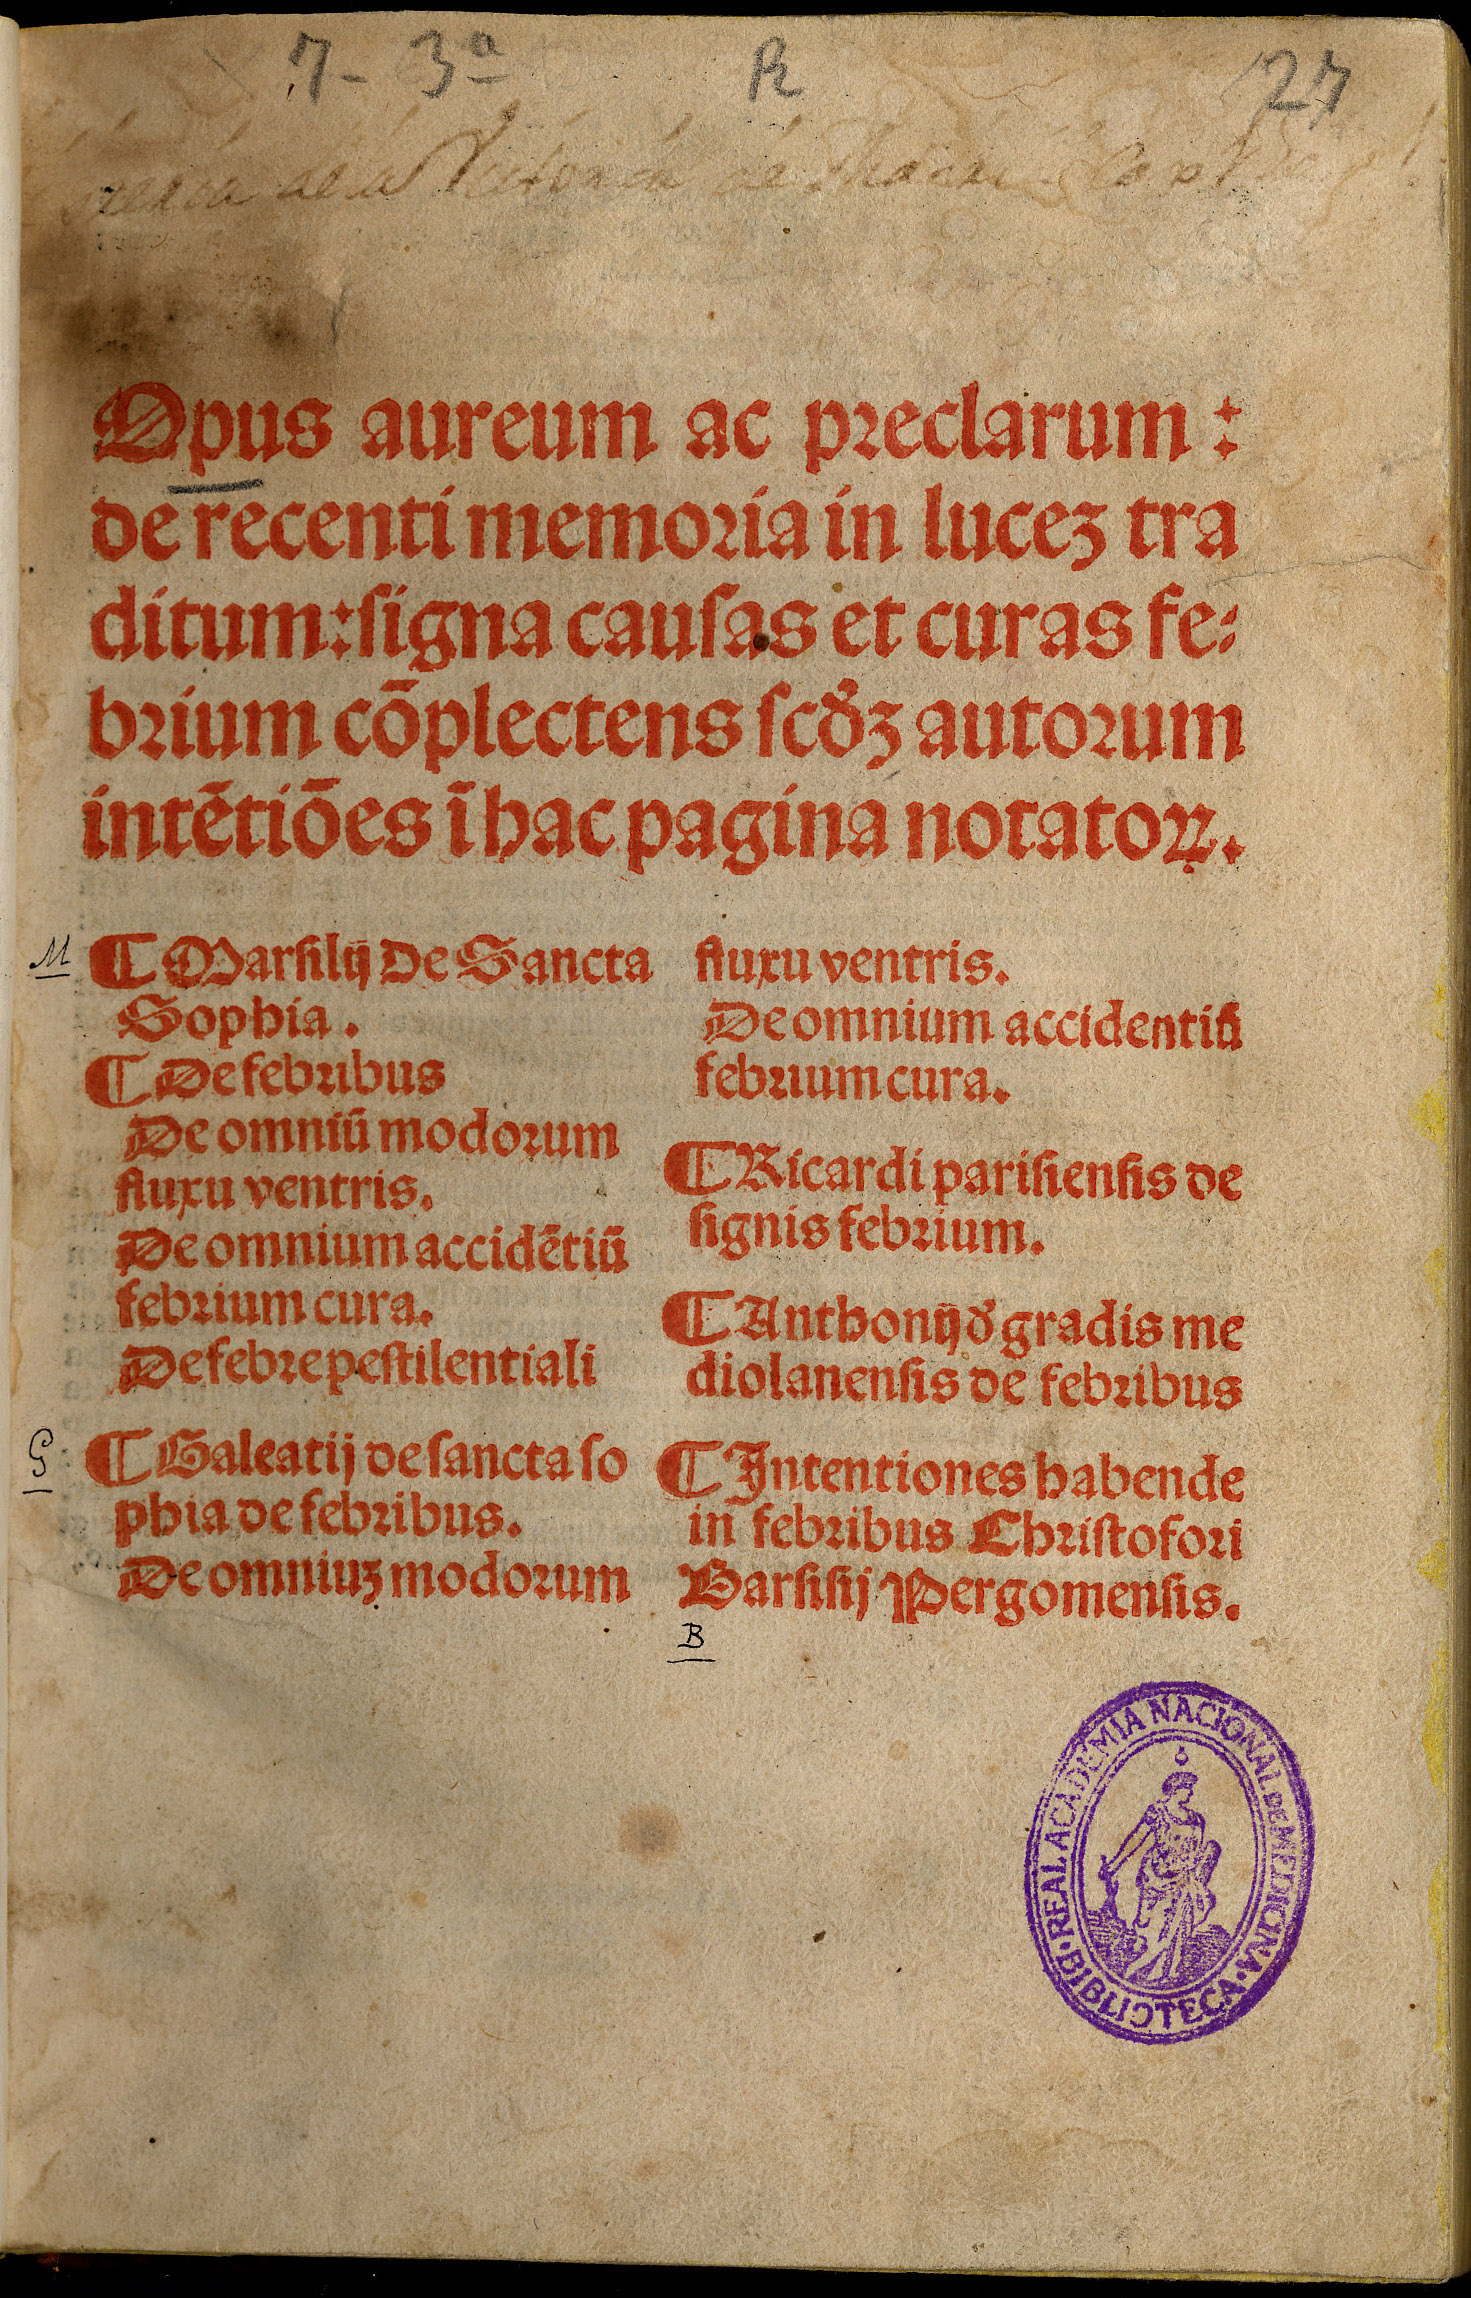 7 - 3ª R 27
Opus aureum ac preclarum :
de recenti memoria in luceꝫ tra
ditum : signa causas et curas fe-
brium cōplectens scd̓ꝫ autorum
intētiões ī hac pagina notatoꝝ.
M
¶ Marsilij De Sancta
Sophia .
¶ De febribus
De omniū modorum
fluxu ventris.
De omnium accidētiū
febrium cura.
De febre pestilentiali
G
¶ Galeatij de sancta so
phia de febribus.
De omniuꝫ modorum
fluxu ventris.
De omnium accidentiū
febrium cura.
¶ Ricardi parisiensis de
signis febrium.
¶ Anthonij d̓ gradis me
diolanensis de febribus
¶ Intentiones habende
in febribus Christofori
Barsisij Pergomensis.
B
REAL ACADEMIA NACIONAL DE MEDICINA
• BIBLIOTECA •